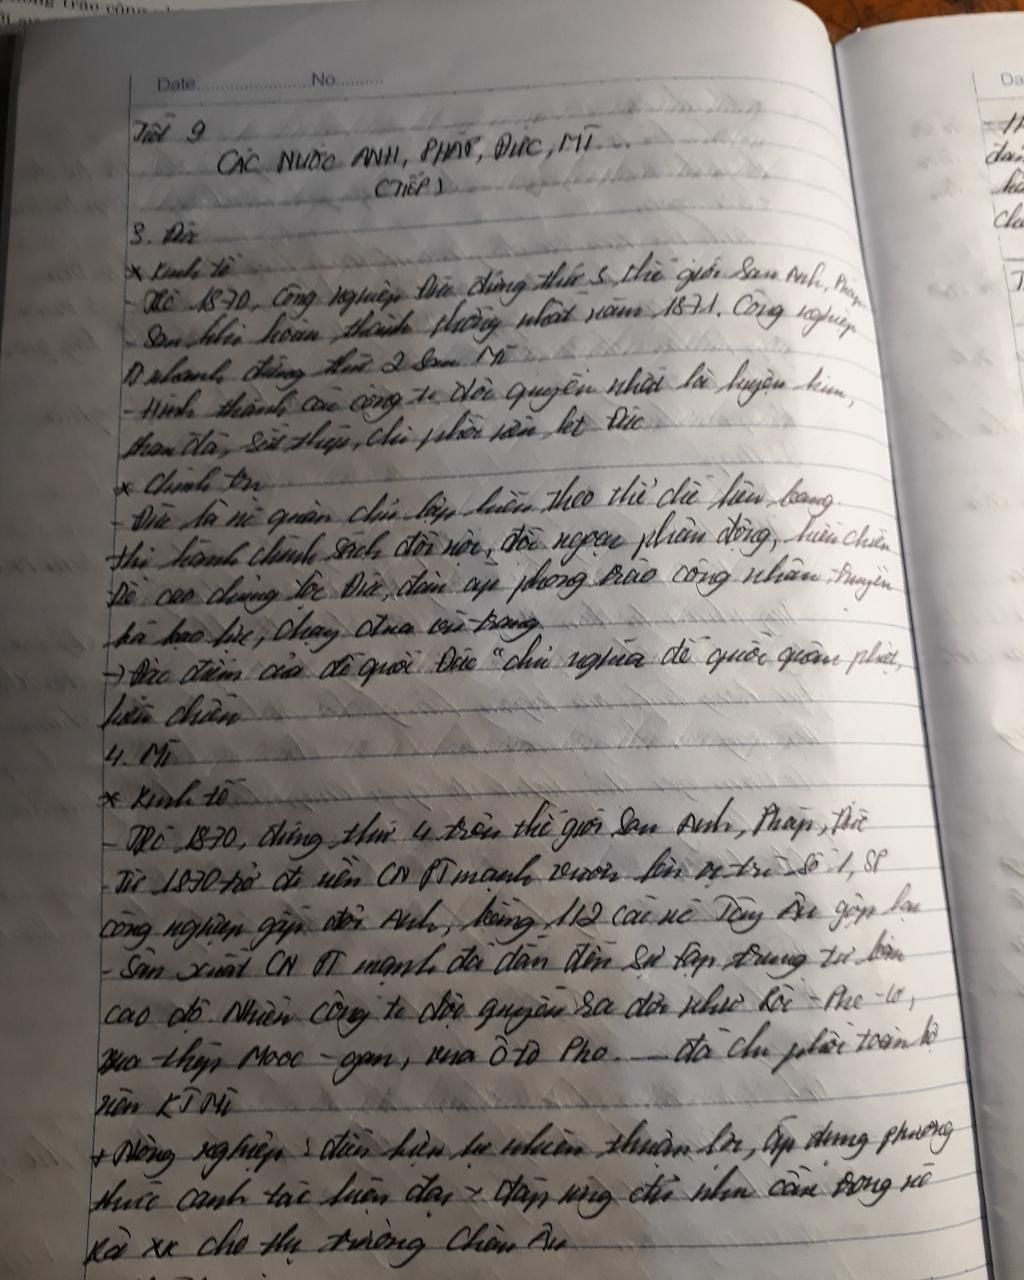 Date..............No.........
Tiết 9
CÁC NƯỚC ANH, PHÁP, ĐỨC, MĨ
(TIẾP)
3. Đức
* Kinh tế
- Trc 1870, Công nghiệp Đức đứng thứ 3 thế giới Sau Anh, Pháp
- Sau khi hoàn thành thống nhất năm 1871. Công nghiệp
nhanh đứng thứ 2 sau Mĩ
- Hình thành các công ti độc quyền nhất là luyện kim,
than đá, sắt thép, chi phối nền kt Đức
* Chính trị
- Đức là nc quân chủ lập hiến theo thể chế liên bang
thi hành chính sách đối nội, đối ngoại phản động, hiếu chiến
Đề cao chủng tộc Đức, đàn áp phong trào công nhân, truyền
bá bạo lực, chạy đua vũ trang
-> Đặc điểm của đế quốc Đức "chủ nghĩa đế quốc quân phiệt,
hiếu chiến
4. Mĩ
* Kinh tế
- Trc 1870, đứng thứ 4 trên thế giới Sau Anh, Pháp, Đức
- Từ 1870 trở đi nền CN PT mạnh vươn lên vị trí số 1, SP
công nghiệp gấp đôi Anh, bằng 1/2 các nc Tây Âu gộp lại
- Sản xuất CN PT mạnh đã dẫn đến sự tập trung tư bản
cao độ. Nhiều công ti độc quyền ra đời như Rốc-Phe-lơ,
vua thép Mooc-gan, vua Ô tô Pho... đã chi phối toàn bộ
nền KT Mĩ
+ Nông nghiệp: điều kiện tự nhiên thuận lợi, áp dụng phương
thức canh tác hiện đại đáp ứng đủ nhu cầu trong nc
và xk cho thị trường Châu Âu